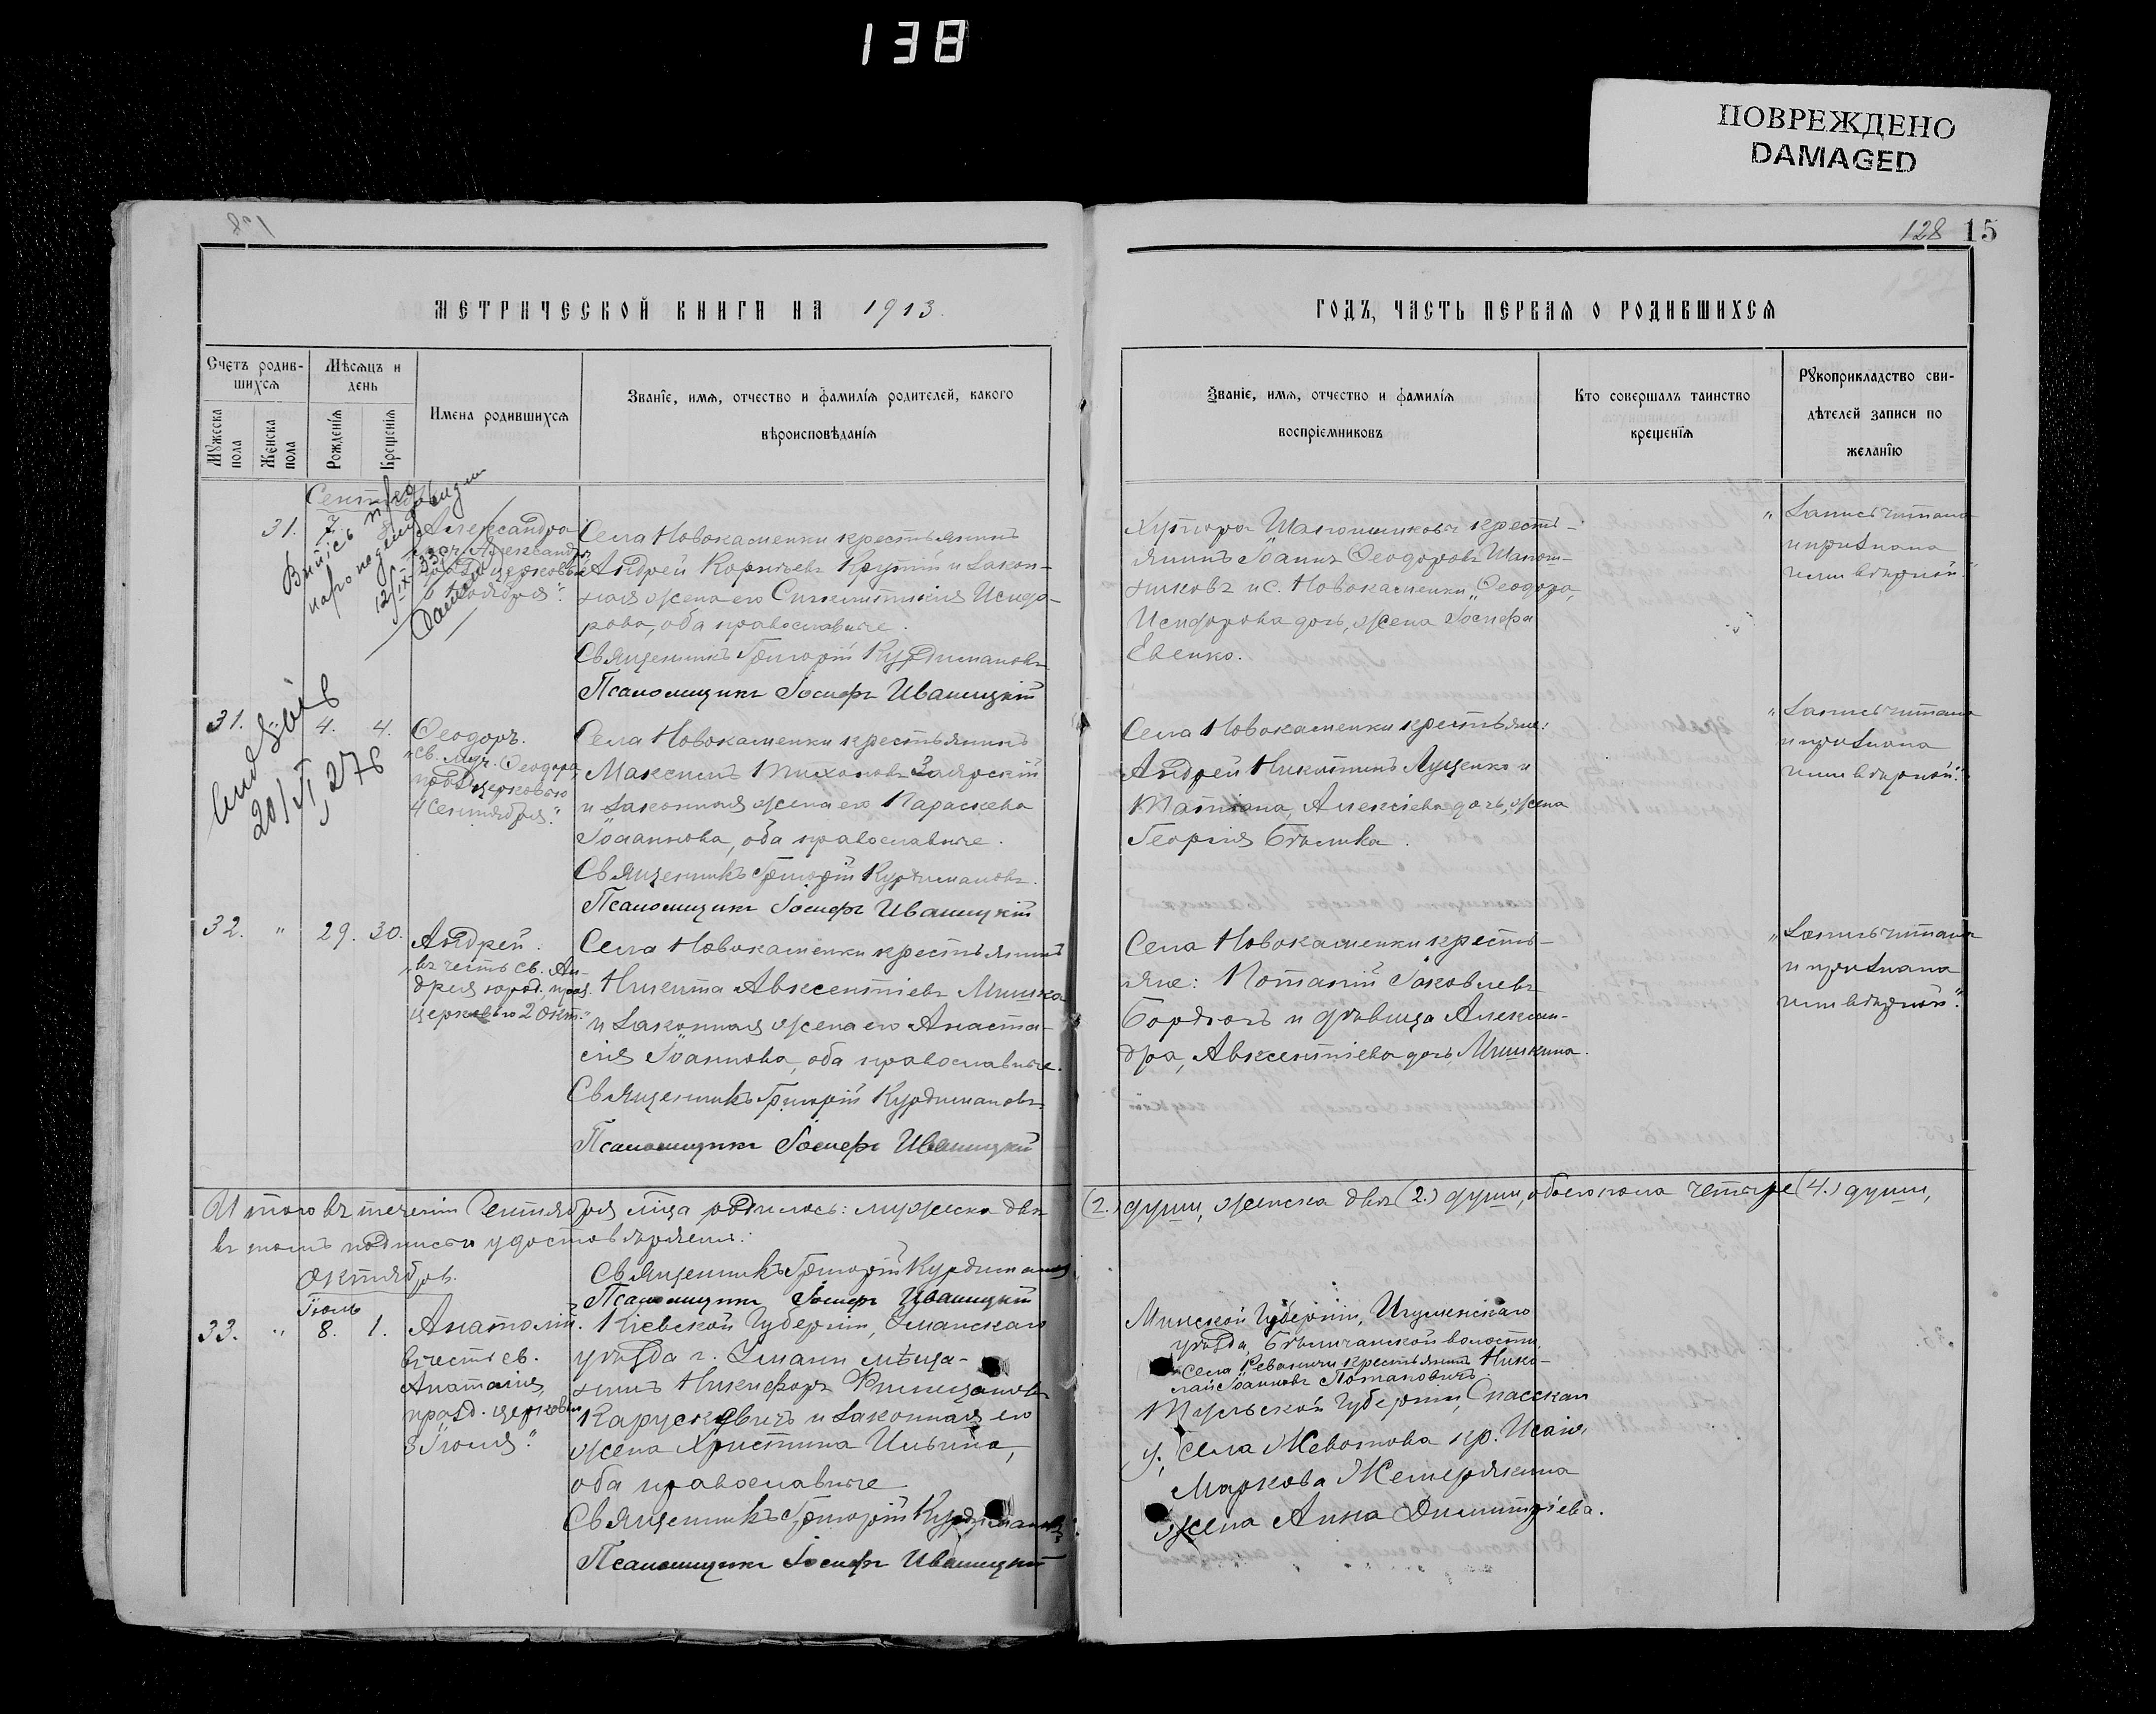 138
ПОВРЕЖДЕНО
DAMAGED
128
128 15
МЕТРИЧЕСКОЙ КНИГИ НА 1913.
ГОДЪ, ЧАСТЬ ПЕРВАЯ О РОДИВШИХСЯ
Счетъ родив-
шихся
Мѣсяцъ и
день
Мужеска
пола
Женска
пола
Рожденія
Крещенія
Имена родившихся
Званіе, имя, отчество и фамилія родителей, какого
вѣроисповѣданія
Званіе, имя, отчество и фамилія
воспріемниковъ
Кто совершалъ таинство
крещенія
Рукоприкладство сви-
дѣтелей записи по
желанію
31. 7. 8. Александра
церковью
Витіс про
народження
12/IX-33
Села Новокаменки крестьянинъ
Андрей Корніевъ Крупій и закон-
ная жена его Синклитикія Исидо-
рова, оба православные.
Священникъ Григорій Курдимановъ
Псаломщикъ Іосифъ Иваницкій
Хутора крестъ-
янинъ Іоаннъ Ѳеодоровъ
никовъ и с. Новокаменки Ѳеодора,
Исидорова дочь, жена Іосифа
Евенко.
"Запись читана
и признана
нами вѣрной."
31. 4. 4. Ѳеодоръ.
"Св. Муч. Ѳеодора,
празд церковью
4 Сентября."
20/VI 276
Села Новокаменки крестьянинъ
Максимъ Тихоновъ Заярскій
и законная жена его Параскева
Іоаннова, оба православные.
Священникъ Григорій Курдимановъ.
Псаломщикъ Іосифъ Иваницкій
Села Новокаменки крестьяне:
Андрей Никитинъ Луценко и
Татіана, Алексіева дочь, жена
Георгія Бѣлика.
"Запись читана
и признана
нами вѣрной."
32. " 29. 30. Андрей.
"въ честь св. Ан-
дрея юрод., празд.
церковью 2 Окт."
Села Новокаменки крестьянинъ
Никита Авксентіевъ Мишка
и законная жена его Анаста-
сія Іоаннова, оба православные.
Священникъ Григорій Курдимановъ.
Псаломщикъ Іосифъ Иваницкій
Села Новокаменки кресть-
яне: Потапій Іаковлевъ
Бордюгъ и дѣвица Алексан-
дра, Авксентіева дочь, Мишкина.
"Запись читана
и признана
нами вѣрной."
Итого въ теченіи Сентября м-ца родилось: мужска двѣ (2.) души, женска двѣ (2.) души, обоего пола четыре (4.) души,
въ томъ подписью удостовѣряемъ:
Священникъ Григорій Курдимановъ
Псаломщикъ Іосифъ Иваницкій
Октябрь.
Іюль
33. " 8. 1. Анатолій.
въ честь св.
Анатолія,
празд. церковью
3 Іюля."
Кіевской Губерніи, Уманскаго
уѣзда г. Умани мѣща-
нинъ Никифоръ
и законная его
жена Христина Ильина,
оба православные
Священникъ Григорій Курдимановъ
Псаломщикъ Іосифъ Иваницкій
Минской Губерніи, Игуменскаго
уѣзда, волости,
села крестьянинъ Нико-
лай Іоанновъ Потаповичъ
Губерніи, Спасскаго
у., села кр. Исаіи
Маркова
жена Анна Димитріева.